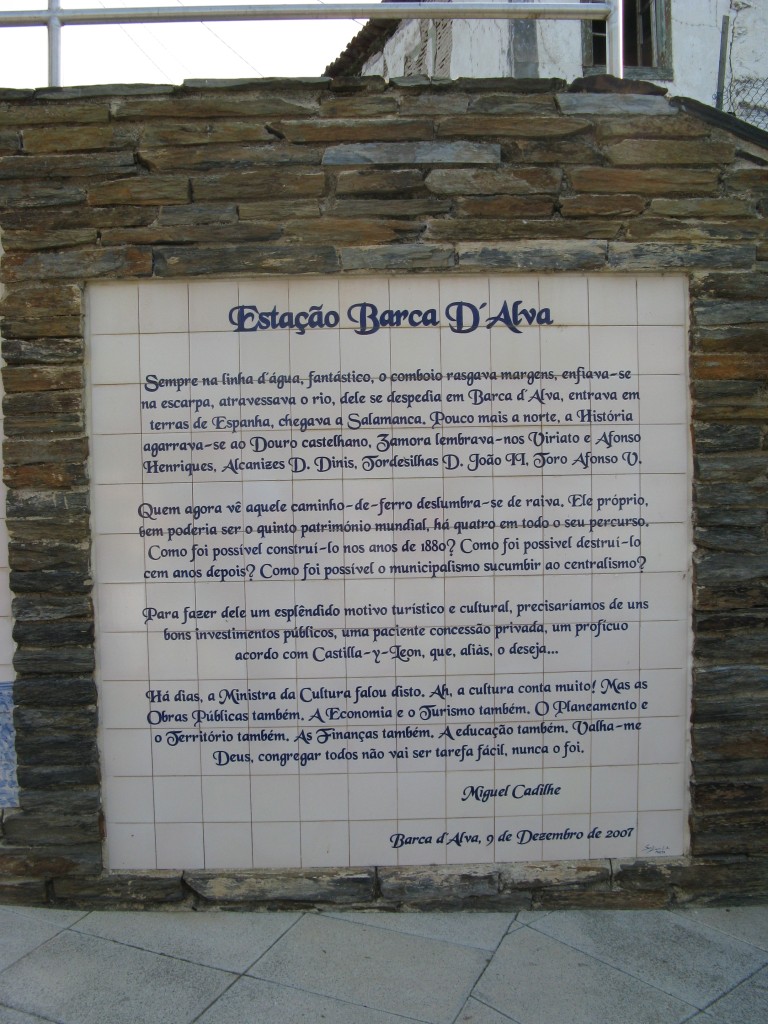 Estação Barca D'Alva
Sempre na linha d'água, fantástico, o comboio rasgava margens, enfiava-se
na escarpa, atravessava o rio, dele se despedia em Barca d'Alva, entrava em
terras de Espanha, chegava a Salamanca. Pouco mais a norte, a História
agarrava-se ao Douro castelhano, Zamora lembrava-nos Viriato e Afonso
Henriques, Alcanizes D. Dinis, Tordesilhas D. João II, Toro Afonso V.
Quem agora vê aquele caminho-de-ferro deslumbra-se de raiva. Ele próprio,
bem poderia ser o quinto património mundial, há quatro em todo o seu percurso.
Como foi possível construí-lo nos anos de 1880? Como foi possivel destruí-lo
cem anos depois? Como foi possível o municipalismo sucumbir ao centralismo?
Para fazer dele um esplêndido motivo turístico e cultural, precisaríamos de uns
bons investimentos públicos, uma paciente concessão privada, um profícuo
acordo com Castilla-y-Leon, que, aliàs, o deseja...
Há dias, a Ministra da Cultura falou disto. Ah, a cultura conta muito! Mas as
Obras Públicas também. A Economia e o Turismo também. O Planeamento e
o Território também. As Finanças também. A educação também. Valha-me
Deus, congregar todos não vai ser tarefa fácil, nunca o foi.
Miguel Cadilhe
Barca d'Alva, 9 de Dezembro de 2007